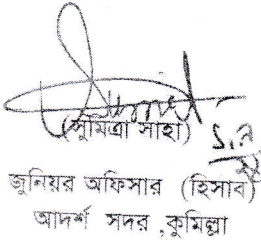 (সুমিত্রা সাহা)
জুনিয়র অফিসার (হিসাব)
আদর্শ সদর ,কুমিল্লা